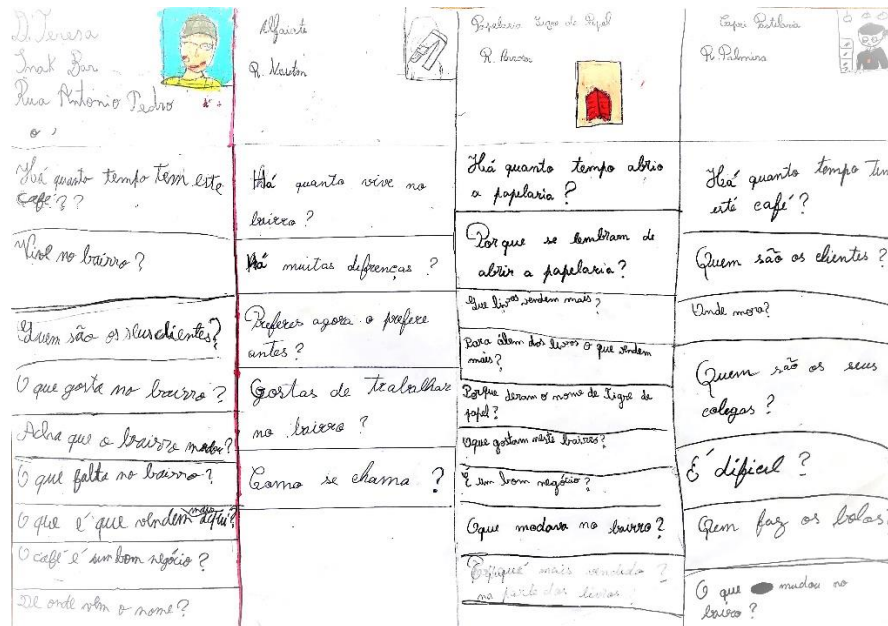 D. Teresa
Snak Bar
Rua Antonio Pedro
Há quanto tempo tem este
café??
Vive no bairro?
Quem são os seus clientes?
O que gosta no bairro?
Acha que o bairro mudou?
O que falta no bairro?
O que é que vendem mais
O café é um bom negócio?
De onde vem o nome?
Alfaiate
R. Newton
Há quanto vive no
bairro?
Há muitas difrenças?
Preferes agora o prefere
antes?
Gostas de trabalhar
no bairro?
Como se chama?
Papelaria Tigre de Papel
R.
Há quanto tempo abrio
a papelaria?
Por que se lembram de
abrir a papelaria?
Que livros vendem mais?
Para além dos livros o que vendem
mais?
Porque deram o nome de Tigre de
papel?
Oque gostam neste bairro?
É um bom negócio?
Oque mudava no bairro?
mais vendido?
na parte dos livros?
Capri Pastelaria
R. Palmira
Há quanto tempo
esté café?
Quem são os clientes?
Onde mora?
Quem são os seus
colegas?
É dificel?
Qem faz os bolos
O que mudou no
bairo?